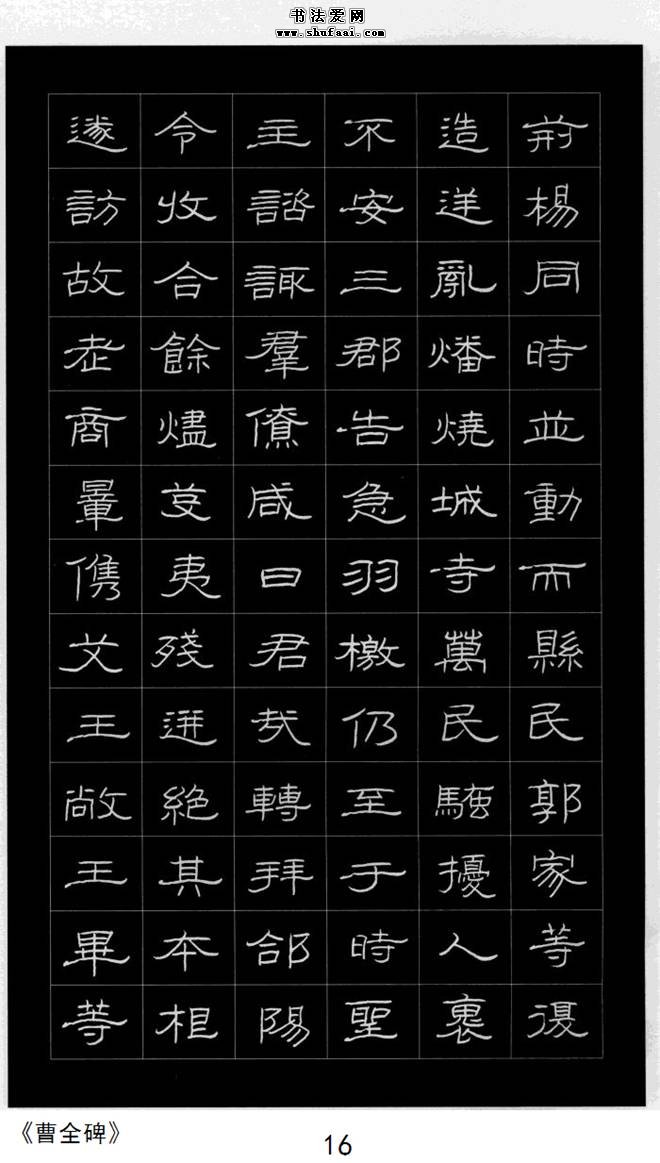 书法爱网
www.shufaai.com
荊楊同時並動而縣民郭家等復
造逆亂燔燒城寺萬民騷擾人裹
不安三郡告急羽檄仍至于時聖
主諮諏羣僚咸曰君哉轉拜郃陽
令收合餘燼芟夷殘迸絕其本根
遂訪故老商暈儁艾王敞王畢等
《曹全碑》
16